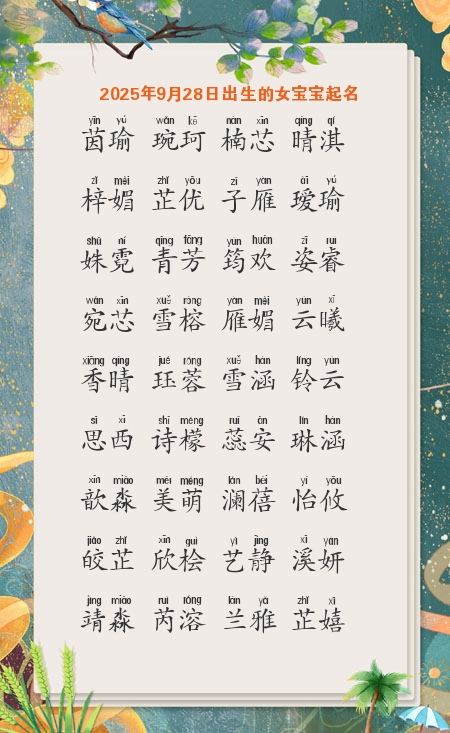 2025年9月28日出生的女宝宝起名
yīn yú wǎn kē nán xīn qíng qí
茵瑜 琬珂 楠芯 晴淇
zǐ mèi zhǐ yōu zǐ yàn ài yú
梓媚 芷优 子雁 瑷瑜
shū ní qīng fāng yún huān zī ruì
姝霓 青芳 筠欢 姿睿
wǎn xīn xuě róng yàn mèi yún xī
宛芯 雪榕 雁媚 云曦
xiāng qíng jué róng xuě hán líng yún
香晴 珏蓉 雪涵 铃云
sī xī shī méng ruǐ ān lín hán
思西 诗檬 蕊安 琳涵
xīn miǎo měi méng lán bèi yí yōu
歆淼 美萌 澜蓓 怡攸
jiǎo zhǐ xīn guì yì jìng xī yán
皎芷 欣桧 艺静 溪妍
jìng miǎo ruì róng lán yǎ zhǐ xī
靖淼 芮溶 兰雅 芷嬉